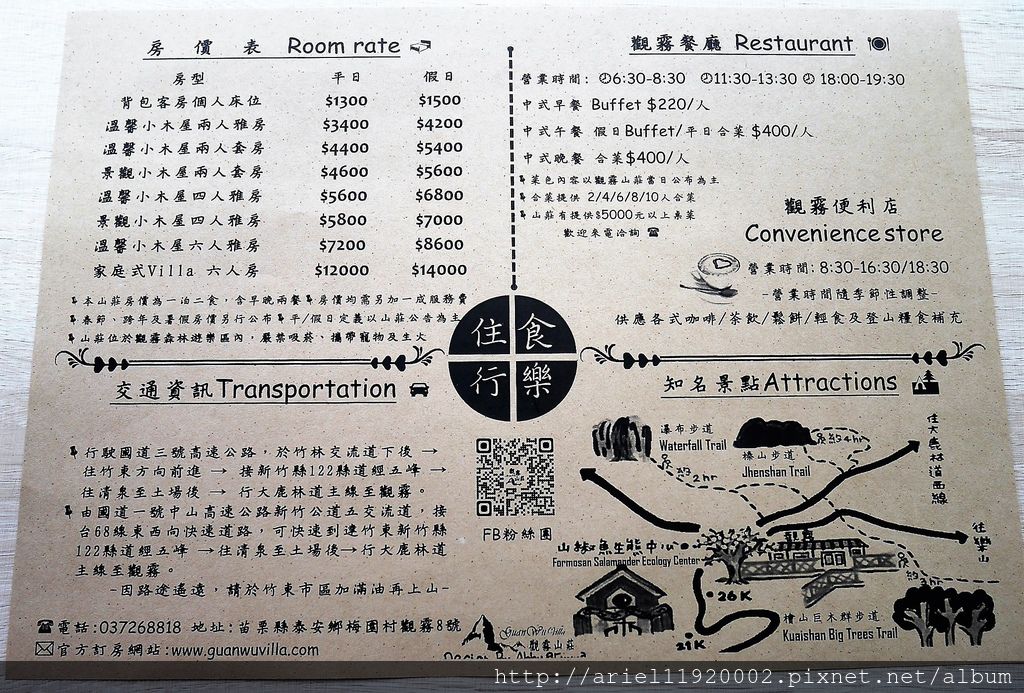 房價表 Room rate
房型 平日 假日
背包客房個人床位 $1300 $1500
溫馨小木屋兩人雅房 $3400 $4200
溫馨小木屋兩人套房 $4400 $5400
景觀小木屋兩人套房 $4600 $5600
溫馨小木屋四人雅房 $5600 $6800
景觀小木屋四人雅房 $5800 $7000
溫馨小木屋六人雅房 $7200 $8600
家庭式Villa 六人房 $12000 $14000
本山莊房價為一泊二食，含早晚兩餐 房價均需另加一成服務費
春節、跨年及暑假房價另行公布 平/假日定義以山莊公告為主
山莊位於觀霧森林遊樂區內，嚴禁吸菸、攜帶寵物及生火
觀霧餐廳 Restaurant
營業時間: 6:30-8:30 11:30-13:30 18:00-19:30
中式早餐 Buffet $220/人
中式午餐 假日Buffet/平日合菜 $400/人
中式晚餐 合菜$400/人
菜色內容以觀霧山莊當日公布為主
合菜提供 2/4/6/8/10人合菜
山莊有提供$5000元以上桌菜
歡迎來電洽詢
觀霧便利店
Convenience store
營業時間: 8:30-16:30/18:30
-營業時間隨季節性調整-
供應各式咖啡/茶飲/鬆餅/輕食及登山糧食補充
住 食
行 樂
交通資訊Transportation
行駛國道三號高速公路，於竹林交流道下後 →
往竹東方向前進 → 接新竹縣122縣道經五峰 →
往清泉至土場後 → 行大鹿林道主線至觀霧。
由國道一號中山高速公路新竹公道五交流道，接
台68線東西向快速道路，可快速到達竹東新竹縣
122縣道經五峰 →往清泉至土場後→行大鹿林道
主線至觀霧。
-因路途遙遠，請於竹東市區加滿油再上山-
電話:037268818 地址:苗栗縣泰安鄉梅園村觀霧8號
官方訂房網站:www.guanwuvilla.com
FB粉絲團
GuanWu Villa
觀霧山莊
知名景點Attractions
瀑布步道
Waterfall Trail
榛山步道
Jhenshan Trail
長約2hr
長約4hr
往大鹿林道西線
往樂山
觀霧
山椒魚生態中心
Formosan Salamander Ecology Center
26K
21K
檜山巨木群步道
Kuaishan Big Trees Trail
http://ariel11920002.pixnet.net/album